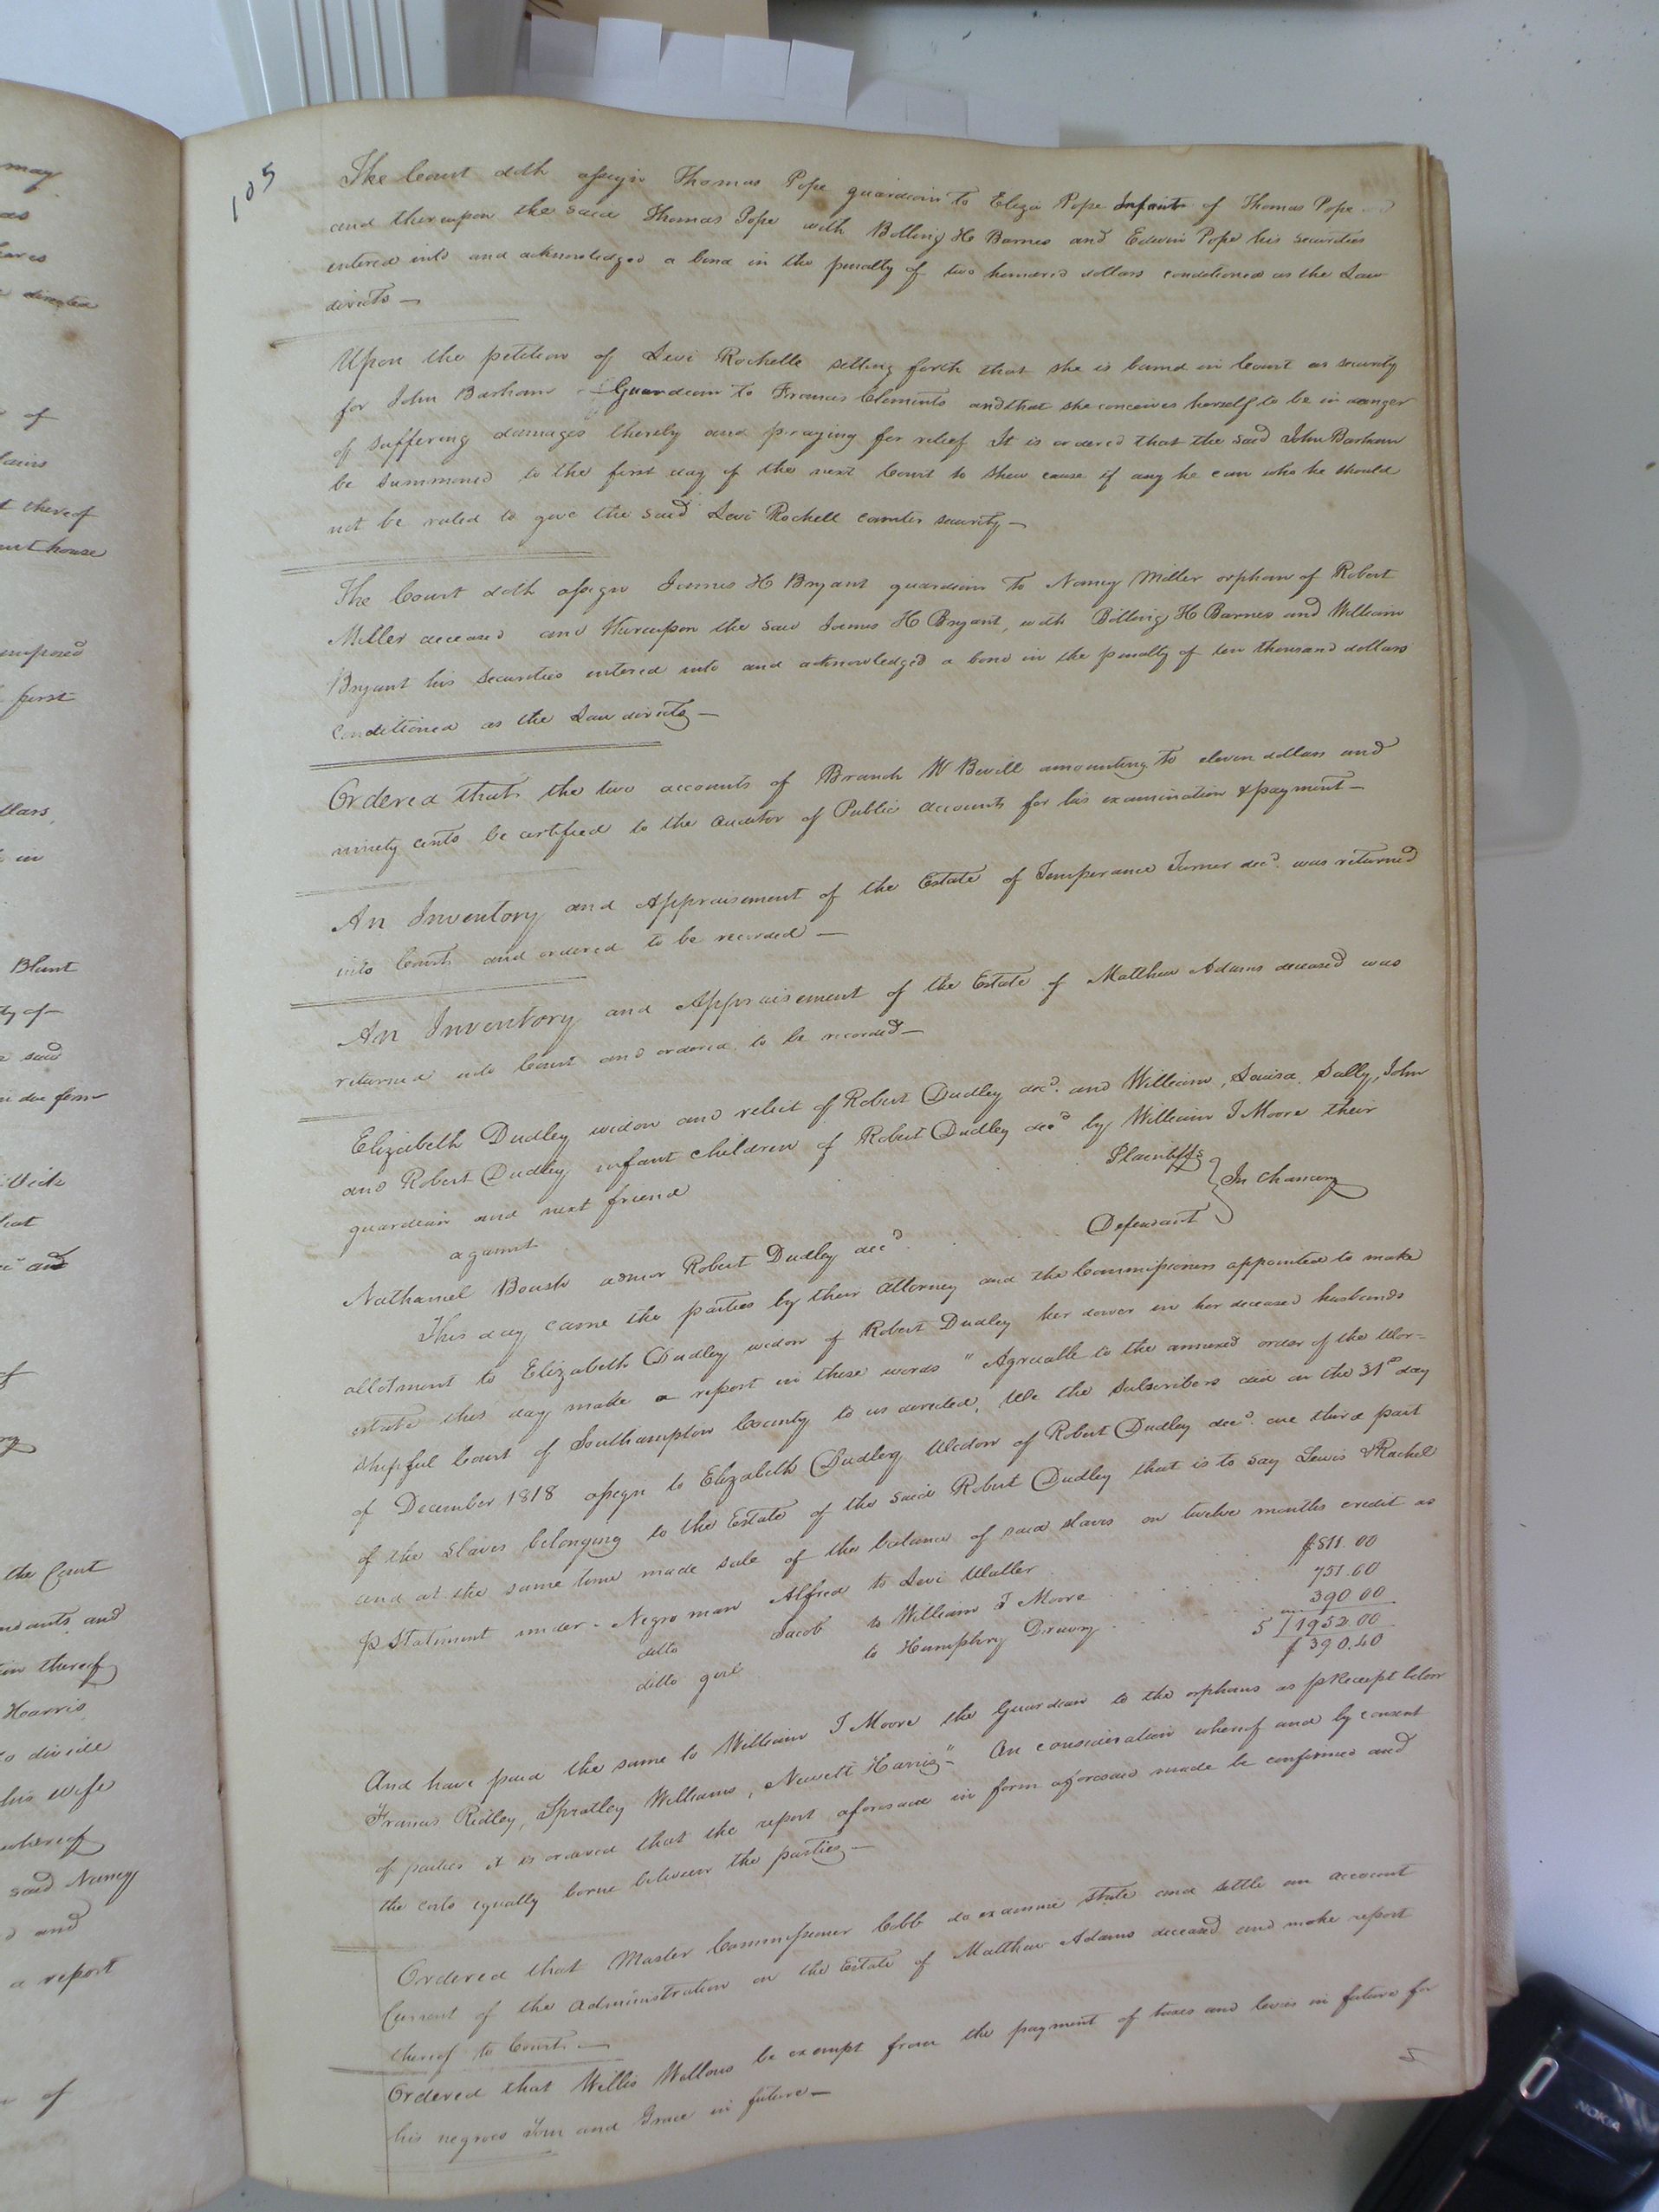 105
The Court doth assign Thomas Pope guardian to Eliza Pope Infant of Thomas Pope
and thereupon the said Thomas Pope with Bolling H Barnes and Edwin Pope his securities
entered into and acknowledged a bond in the penalty of two hundred dollars conditioned as the Law
directs —
Upon the petition of Levi Rochelle setting forth that she is bound in Court as security
for John Barham Guardian to Francis Clements and that she conceives herself to be in danger
of suffering damages thereby and praying for relief It is ordered that the said John Barham
be summoned to the first day of the next Court to shew cause if any he can who he should
not be ruled to give the said Levi Rochell counter security —
The Court doth assign James H Bryant guardian to Nancy Miller orphan of Robert
Miller deceased and thereupon the said James H Bryant, with Bolling H Barnes and William
Bryant his securities entered into and acknowledged a bond in the penalty of ten thousand dollars
Conditioned as the Law directs —
Ordered that the two accounts of Branch W Bevill amounting to eleven dollars and
ninety cents be certified to the Auditor of Public accounts for his examination & payment —
An Inventory and Appraisement of the Estate of Temperance Turner decd. was returned
into Court and ordered to be recorded —
An Inventory and Appraisement of the Estate of Matthew Adams deceased was
returned into Court and ordered to be recorded —
Elizabeth Dudley widow and relict of Robert Dudley decd. and William, Louisa, Sally, John
and Robert Dudley infant children of Robert Dudley decd by William J Moore their
guardian and next friend Plaintiffs
against In Chancery
Nathaniel Boush admor Robert Dudley decd. Defendant
This day came the parties by their Attorney and the Commissioners appointed to make
allotment to Elizabeth Dudley widow of Robert Dudley her dower in her deceased husbands
estate this day make a report in these words " Agreeable to the annexed order of the Wor=
shipful Court of Southampton County to us directed, We the Subscribers did on the 31st day
of December 1818 assign to Elizabeth Dudley Widow of Robert Dudley decd. one third part
of the slaves belonging to the Estate of the said Robert Dudley that is to say Lewis & Rachel
and at the same time made sale of the balance of said slaves on twelve months credit as
p Statement under - Negro man Alfred to Levi Waller $811.00
ditto Jacob to William J Moore 751.00
ditto girl to Humphry Drewry 390.00
5 / 1952.00
$ 390.40
And have paid the same to William J Moore the Guardian to the orphans as p Receipt below
Francis Ridley, Spratley Williams, Newett Harris" - On consideration whereof and by consent
of parties it is ordered that the report aforesaid in form aforesaid made be confirmed and
the costs equally borne between the parties —
Ordered that Master Commissioner Cobb do examine state and settle an account
Current of the administration on the Estate of Matthew Adams deceased and make report
thereof to Court —
Ordered that Willis Wellons be exempt from the payment of taxes and levies in future for
his negroes Tom and Grace in future —
NOKIA